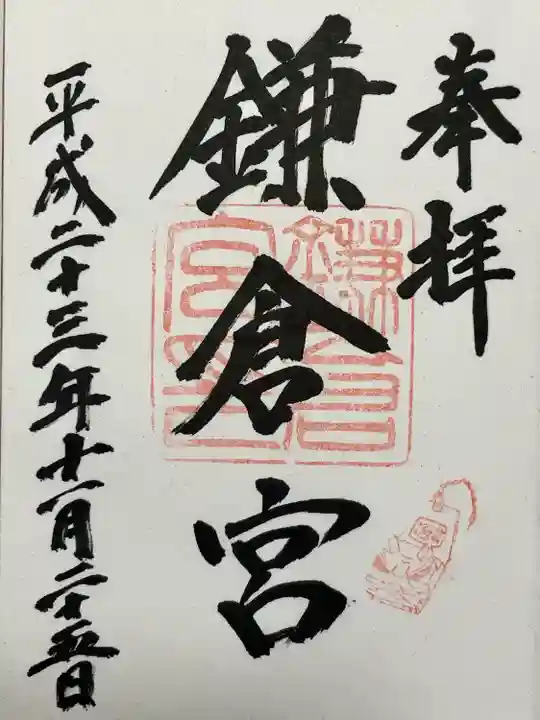 奉拝
鎌倉宮
鎌倉宮印
平成二十三年十一月二十五日